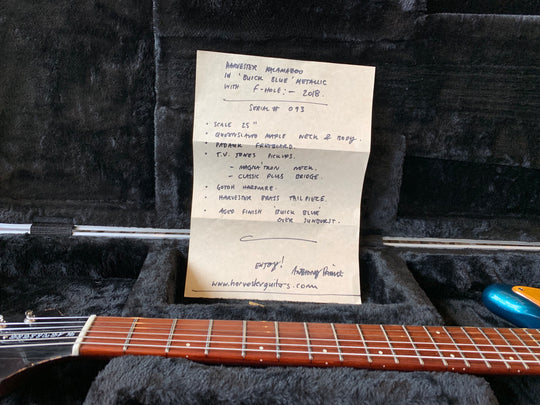 HARVESTER KALAMAZOO
IN 'BUICK BLUE' METALLIC
WITH F-HOLE:- 2018.
SERIAL # 093
• SCALE 25"
• QUEENSLAND MAPLE NECK & BODY.
• PADAUK FRETBOARD.
• T.V. JONES PICKUPS.
- MAGNATRON NECK.
- CLASSIC PLUS BRIDGE.
• GOTOH HARDWARE.
• HARVESTER BRASS TAILPIECE.
• AGED FINISH BUICK BLUE
OVER SUNBURST.
ENJOY! Anthony
www.harvesterguitars.com